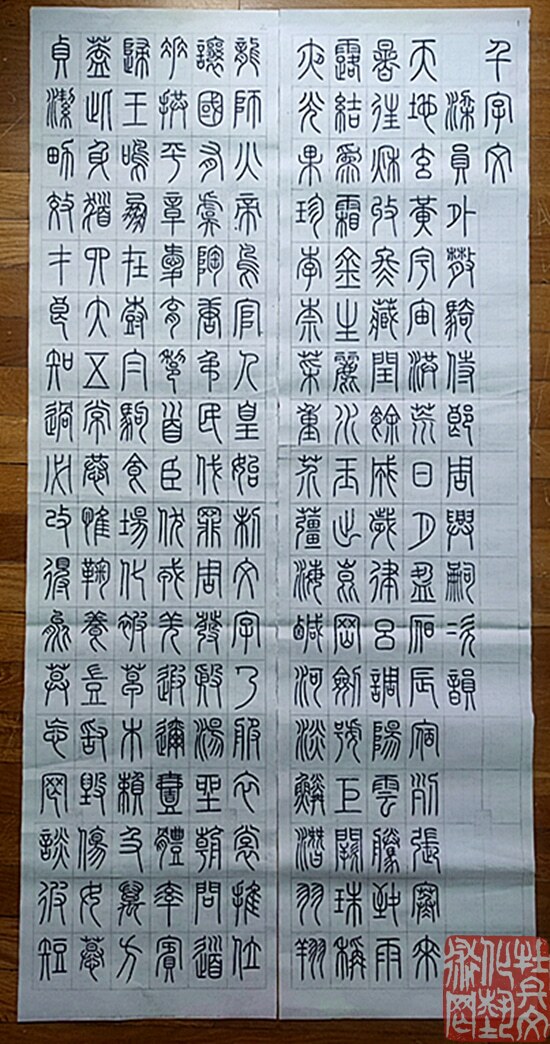 千字文
梁員外散騎侍郎周興嗣次韻
天地玄黃宇宙洪荒日月盈昃辰宿列張寒來
暑往秋收冬藏閏餘成歲律呂調陽雲騰致雨
露結為霜金生麗水玉出崑岡劍號巨闕珠稱
夜光果珍李柰菜重芥薑海鹹河淡鱗潛羽翔
龍師火帝鳥官人皇始制文字乃服衣裳推位
讓國有虞陶唐弔民伐罪周發殷湯坐朝問道
垂拱平章愛育黎首臣伏戎羌遐邇壹體率賓
歸王鳴鳳在樹白駒食場化被草木賴及萬方
蓋此身髮四大五常恭惟鞠養豈敢毀傷女慕
貞潔男效才良知過必改得能莫忘罔談彼短